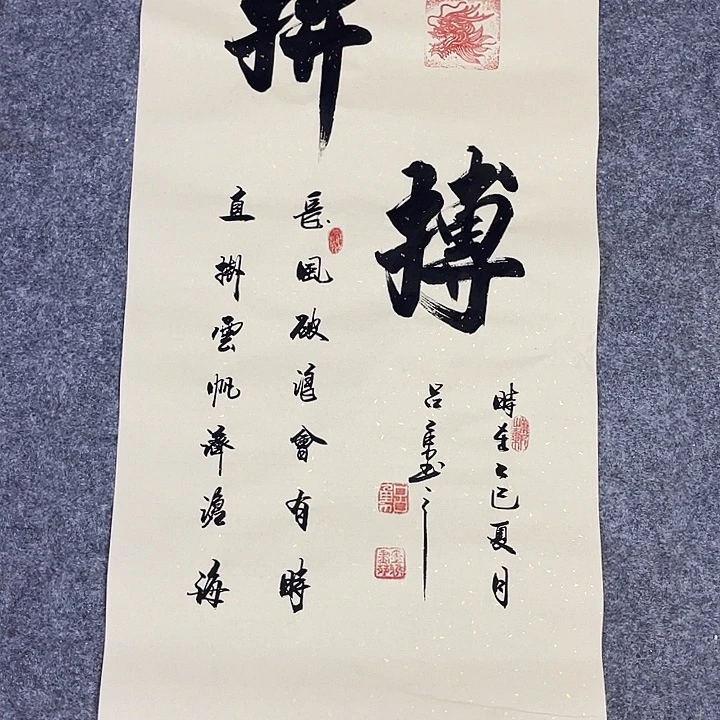 拼
搏
長風破浪會有時
直掛雲帆濟滄海
時在乙巳夏月
呂軍書之